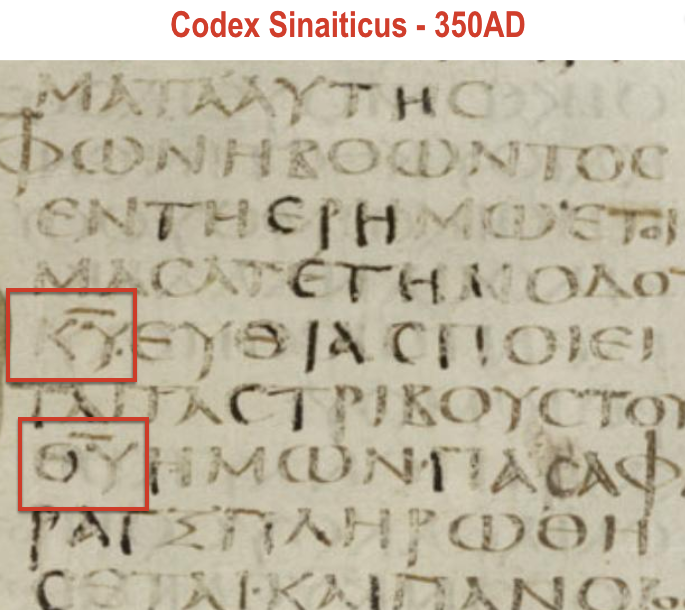 Codex Sinaiticus - 350AD
ΜΑΤΑΑΥΤΗϹ
ΦΩΝΗΒΟΩΝΤΟϹ
ΕΝΤΗΕΡΗΜΩ·ΕΤΟΙ
ΜΑϹΑΤΕΤΗΝΟΔΟ
Κ̅Υ̅·ΕΥΘΙΑϹΠΟΙΕΙ
ΤΑΙΤΑϹΤΡΙΒΟΥϹΤΟΥ
Θ̅Υ̅ΗΜΩΝ·ΠΑϹΑΦ
ΡΑΓΞΠΛΗΡΩΘΗ
ϹΕΤΑΙ·ΚΑΙΠΑΝΟΡ